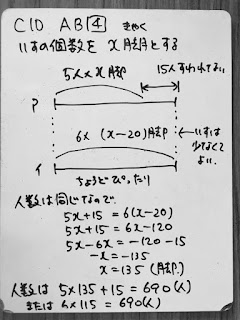 C10 AB 4 きゃく
いすの個数を x 脚とする
15人すわれない
5人×x脚
ア
6×(x-20)脚
いすは
少なくて
よい.
イ
ちょうどぴったり
人数は同じなので.
5x+15=6(x-20)
5x+15=6x-120
5x-6x=-120-15
-x=-135
x=135(脚)
人数は 5×135+15=690(人)
または 6×115=690(人)